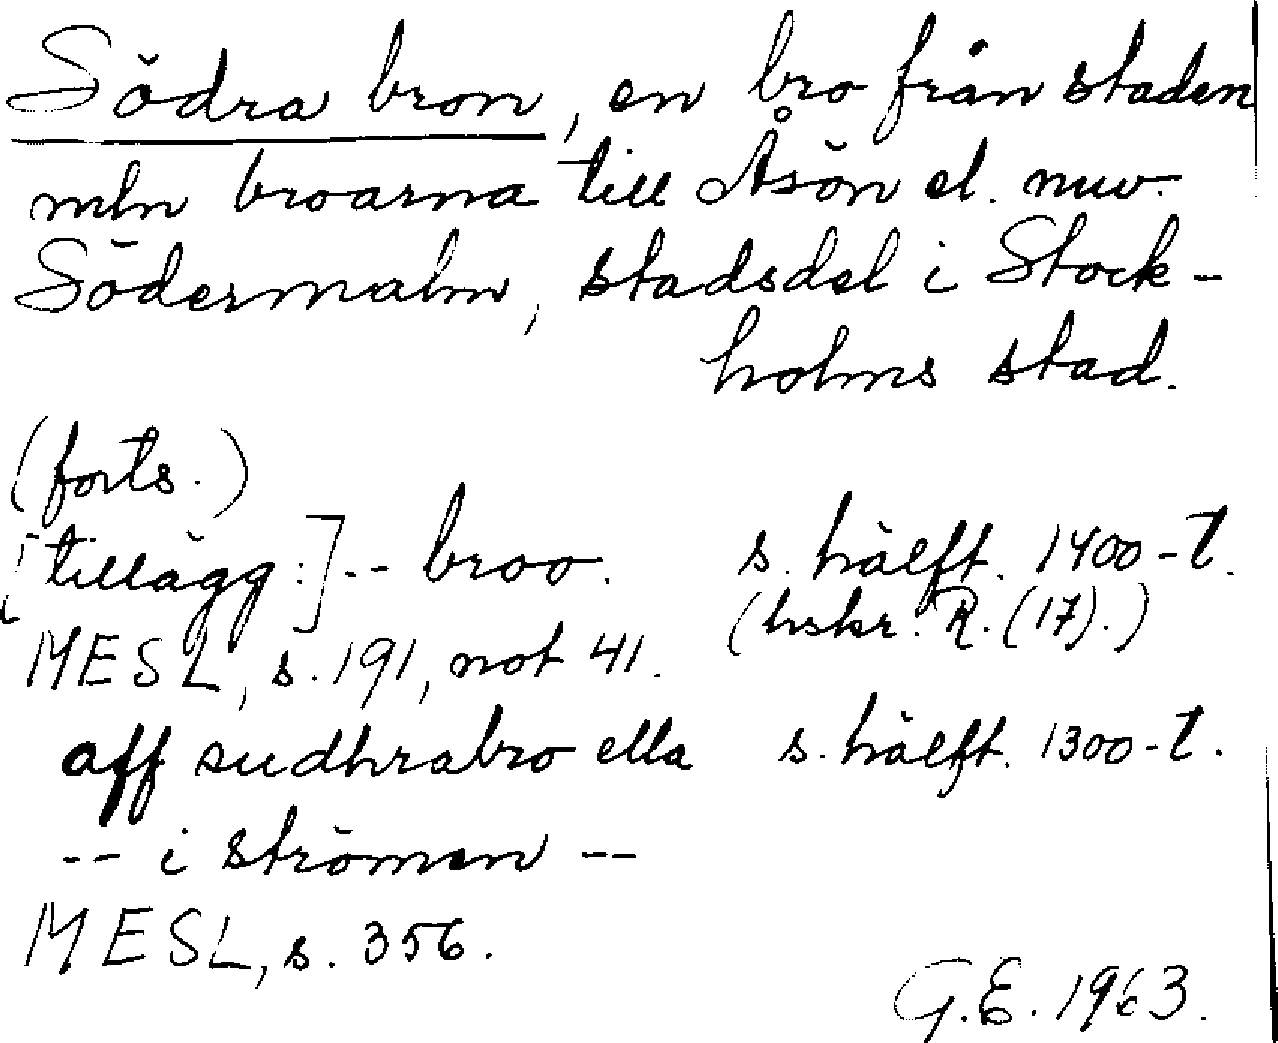 Södra bron, en bro från staden
mln broarna till Åsön el. nuv.
Södermalm, stadsdel i Stock-
holms stad.
(forts.)
[tillägg:] -- broo. s. hälft. 1400-t.
(hskr. R. (17).)
MESL, s. 191, not 41.
aff sudhrabro ella s. hälft. 1300-t.
-- i strömen --
MESL, s. 356.
G.E. 1963.